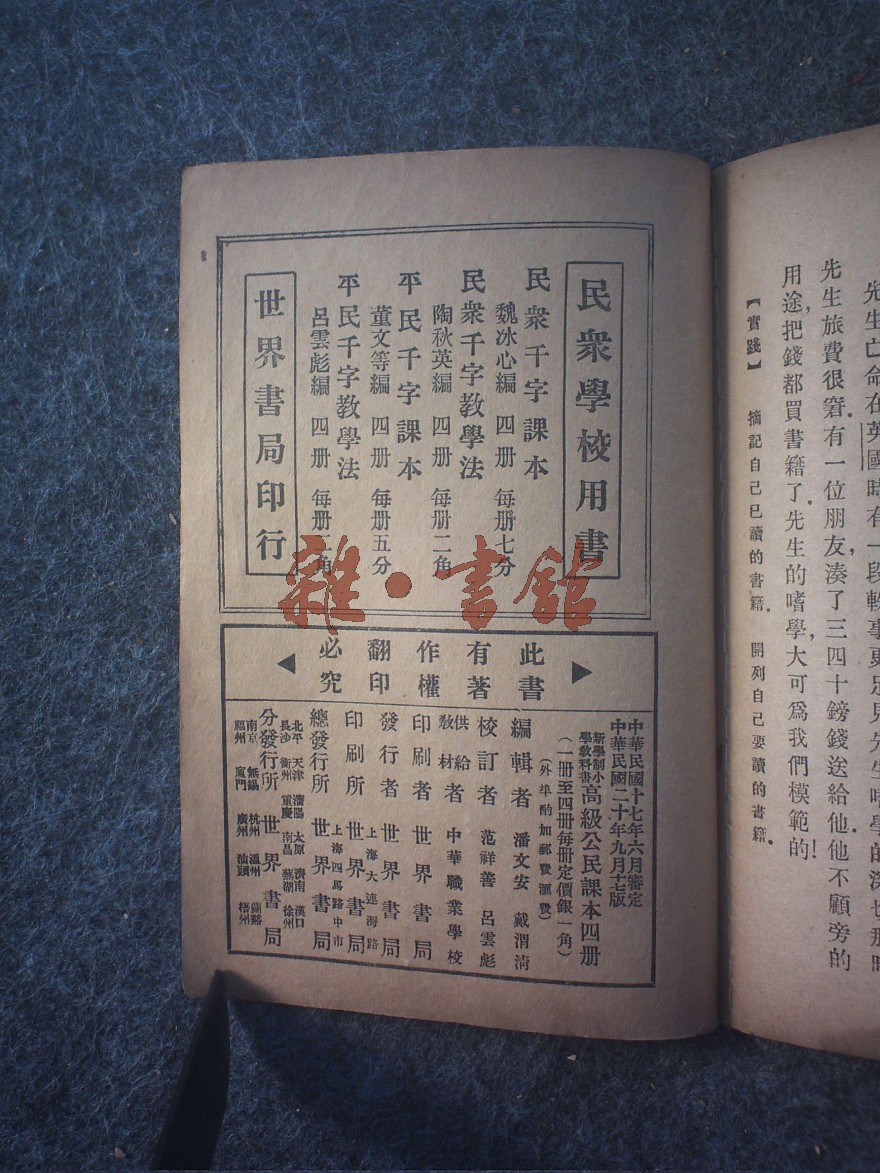 先生亡命在英國時有一段軼事更足見先生嗜學的深
先生旅費很窘.有一位朋友,湊了三四十鎊錢送給他.他不顧旁的
用途,把錢都買書籍了.先生的嗜學,大可爲我們模範的!
【實踐】 摘記自己已讀的書籍. 開列自己要讀的書籍.
民衆學校用書
民衆千字課本
魏冰心編 四册 每册七分
民衆千字教學法
陶秋英編 四册 每册二角
平民千字課本
董文等編 四册 每册五分
平民千字教學法
呂雲彪編 四册 每册二角
世界書局印行
雜·書館
此書有著作權翻印必究
中華民國十七年六月審定
中華民國二十年九月十七版
新學制小學教科書高級公民課本四册
(一册至四册每册定價銀一角)
(外埠酌加郵費滙費)
編輯者 潘文安 戴渭清
校訂者 范祥善 呂雲彪
供給教材者 中華職業學校
印刷者 世界書局
發行者 世界書局
印刷所 上海大連灣路 世界書局
總發行所 上海四馬路中市 世界書局
分發行所 世界書局
北平 天津 瀋陽 太原 濟南 漢口
長沙 衡州 重慶 南昌 蕪湖 徐州
南京 無錫 杭州 溫州 蘭谿
福州 廈門 廣州 汕頭 梧州